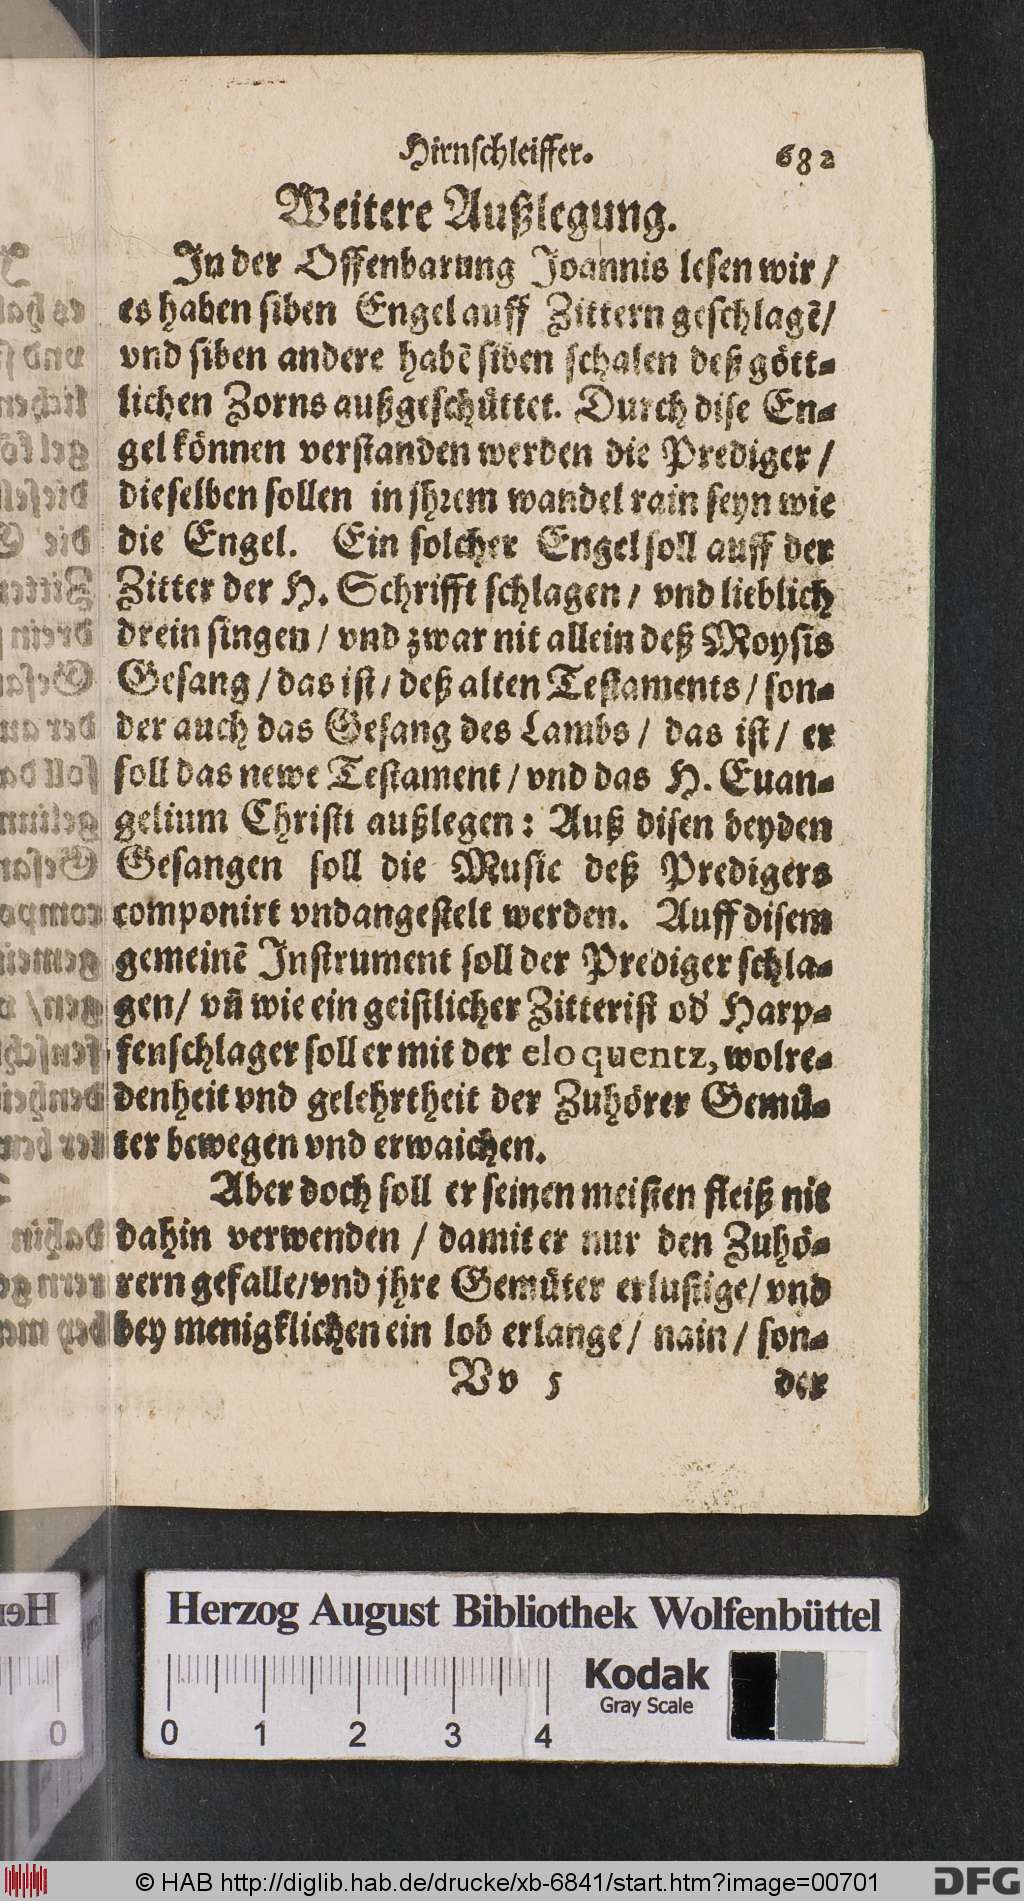 Hirnschleiffer. 682
Weitere Außlegung.
In der Offenbarung Joannis lesen wir /
es haben siben Engel auff Zittern geschlagẽ/
vnd siben andere habẽ siben schalen deß gött-
lichen Zorns außgeschüttet. Durch dise En-
gel können verstanden werden die Prediger /
dieselben sollen in jhrem wandel rain seyn wie
die Engel. Ein solcher Engel soll auff der
Zitter der H. Schrifft schlagen / vnd lieblich
drein singen / vnd zwar nit allein deß Moysis
Gesang / das ist / deß alten Testaments / son-
der auch das Gesang des Lambs / das ist / er
soll das newe Testament / vnd das H. Euan-
gelium Christi außlegen: Auß disen beyden
Gesangen soll die Music deß Predigers
componirt vnd angestelt werden. Auff disem
gemeinẽ Instrument soll der Prediger schla-
gen/ vñ wie ein geistlicher Zitterist od' Harp-
fenschlager soll er mit der eloquentz, wolre-
denheit vnd gelehrtheit der Zuhörer Gemü-
ter bewegen vnd erwaichen.
Aber doch soll er seinen meisten fleiß nit
dahin verwenden / damit er nur den Zuhö-
rern gefalle/vnd jhre Gemüter erlustige/ vnd
bey menigklichen ein lob erlange / nain / son-
Vv 5 der
Herzog August Bibliothek Wolfenbüttel
Kodak
Gray Scale
0 1 2 3 4
© HAB http://diglib.hab.de/drucke/xb-6841/start.htm?image=00701
DFG